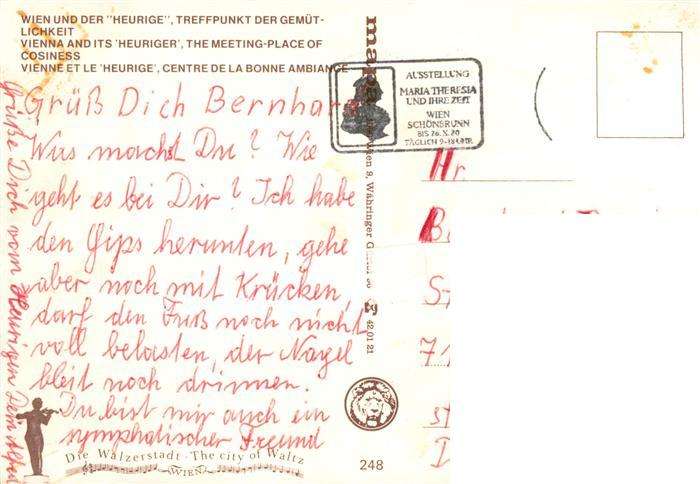 WIEN UND DER "HEURIGE", TREFFPUNKT DER GEMÜT-
LICHKEIT
VIENNA AND ITS 'HEURIGER', THE MEETING-PLACE OF
COSINESS
VIENNE ET LE 'HEURIGE', CENTRE DE LA BONNE AMBIANCE
Grüß Dich Bernhard
Was macht Du? Wie
geht es bei Dir? Ich habe
den Gips herunten, gehe
aber noch mit Krücken,
darf den Fuß noch nicht
voll belasten, der Nagel
bleit noch drinnen.
Du bist mir auch ein
symphatischer Freund
Grüße Dich vom Heurigen Dein
Die Walzerstadt · The city of Waltz
WIEN
AUSSTELLUNG
MARIA THERESIA
UND IHRE ZEIT
WIEN
SCHÖNBRUNN
BIS 26. X. 80
TÄGLICH 9-18 UHR
Wien 9, Währinger
42 01 21
248
Hr.